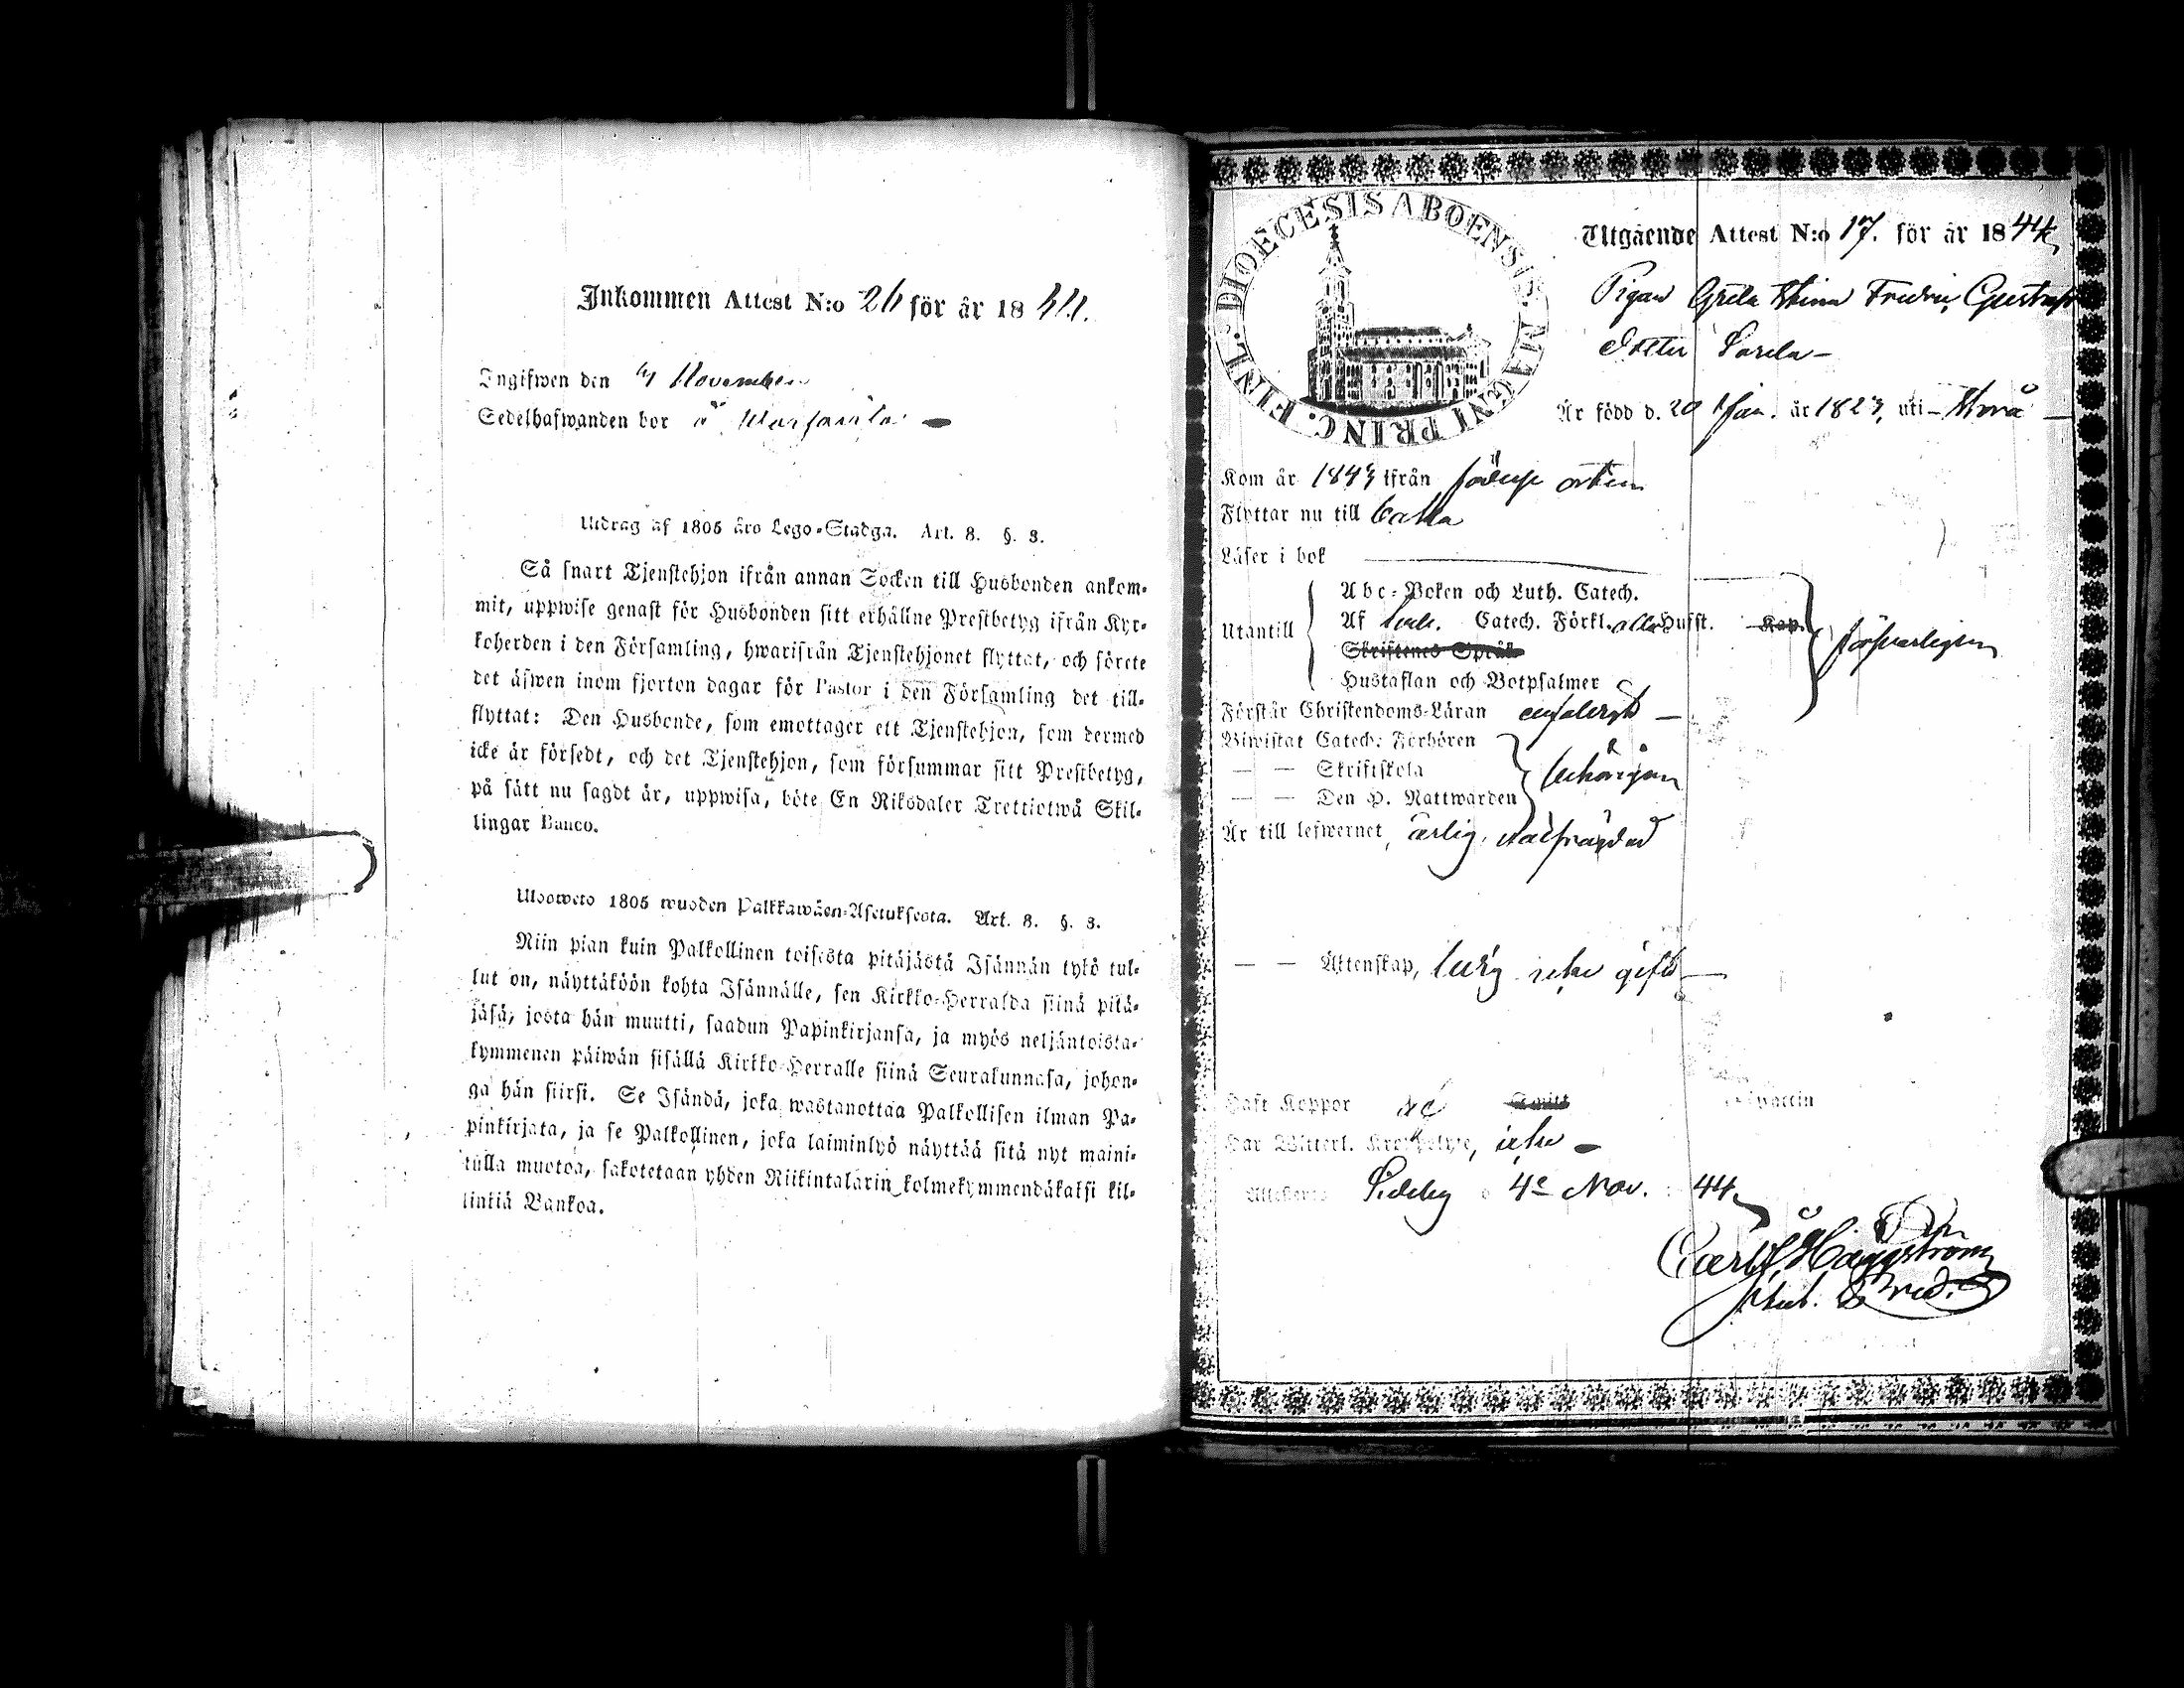 Inkommen Attest N:o 26 för år 1844.
Ingifwen den November
Sedelhafwanden bor å
Utdrag af 1805 års Lego-Stadga. Art. 8. §. 3.
Så snart Tjenstehjon ifrån annan Socken till Husbonden ankom-
mit, uppwise genast för Husbonden sitt erhållne Prestbetyg ifrån Kyr-
koherden i den Församling, hwarifrån Tjenstehjonet flyttat, och förete
det äfwen inom fjorton dagar för Pastor i den Församling det till-
flyttat: Den Husbonde, som emottager ett Tjenstehjon, som dermed
icke är försedt, och det Tjenstehjon, som försummar sitt Prestbetyg,
på sätt nu sagdt är, uppwisa, böte En Riksdaler Trettiotwå Skil-
lingar Banco.
Ulosweto 1805 wuoden Palkkawäen-Asetuksesta. Art. 8. §. 3.
Niin pian kuin Palkollinen toisesta pitäjästä Isännän tykö tul-
lut on, näyttäköön kohta Isännälle, sen Kirkko-Herralda siinä pitä-
jäsä, josta hän muutti, saadun Papinkirjansa, ja myös neljäntoista-
kymmenen päiwän sisällä Kirkko-Herralle siinä Seurakunnasa, johon-
ga hän siirsi. Se Isändä, joka wastanottaa Palkollisen ilman Pa-
pinkirjata, ja se Palkollinen, joka laiminlyö näyttää sitä nyt maini-
tulla muotoa, sakotetaan yhden Riikintalarin kolmekymmendäkaksi kil-
linkiä Bankoa.
DIOECESIS ABOENSIS. MAGNI PRINC. FINL.
Utgående Attest N:o 17. för år 1844
Pigan Greta Stina Fredri. Gustafs
dotter
Är född d. 20 Jan. år 1823, uti
Kom år 1843 ifrån orten
Flyttar nu till
Läser i bok
Utantill
Abc-Boken och Luth. Catech.
Af Catech. Förkl. alla Husst. Kap.
Skriftenes Språk
Hustaflan och Botpsalmer
försvarligen
Förstår Christendoms-Läran enfaldigt
Biwistat Catech. Förhören
— — Skriftskola
— — Den H. Nattwarden
behörigen
Är till lefwernet, ärlig, välfrägdad
— — Ägtenskap, ledig icke gift
Haft Koppor
Har Witterl. Kroppslyte, icke
Attesteras Sideby d 4e Nov. 44
Carl Häggström